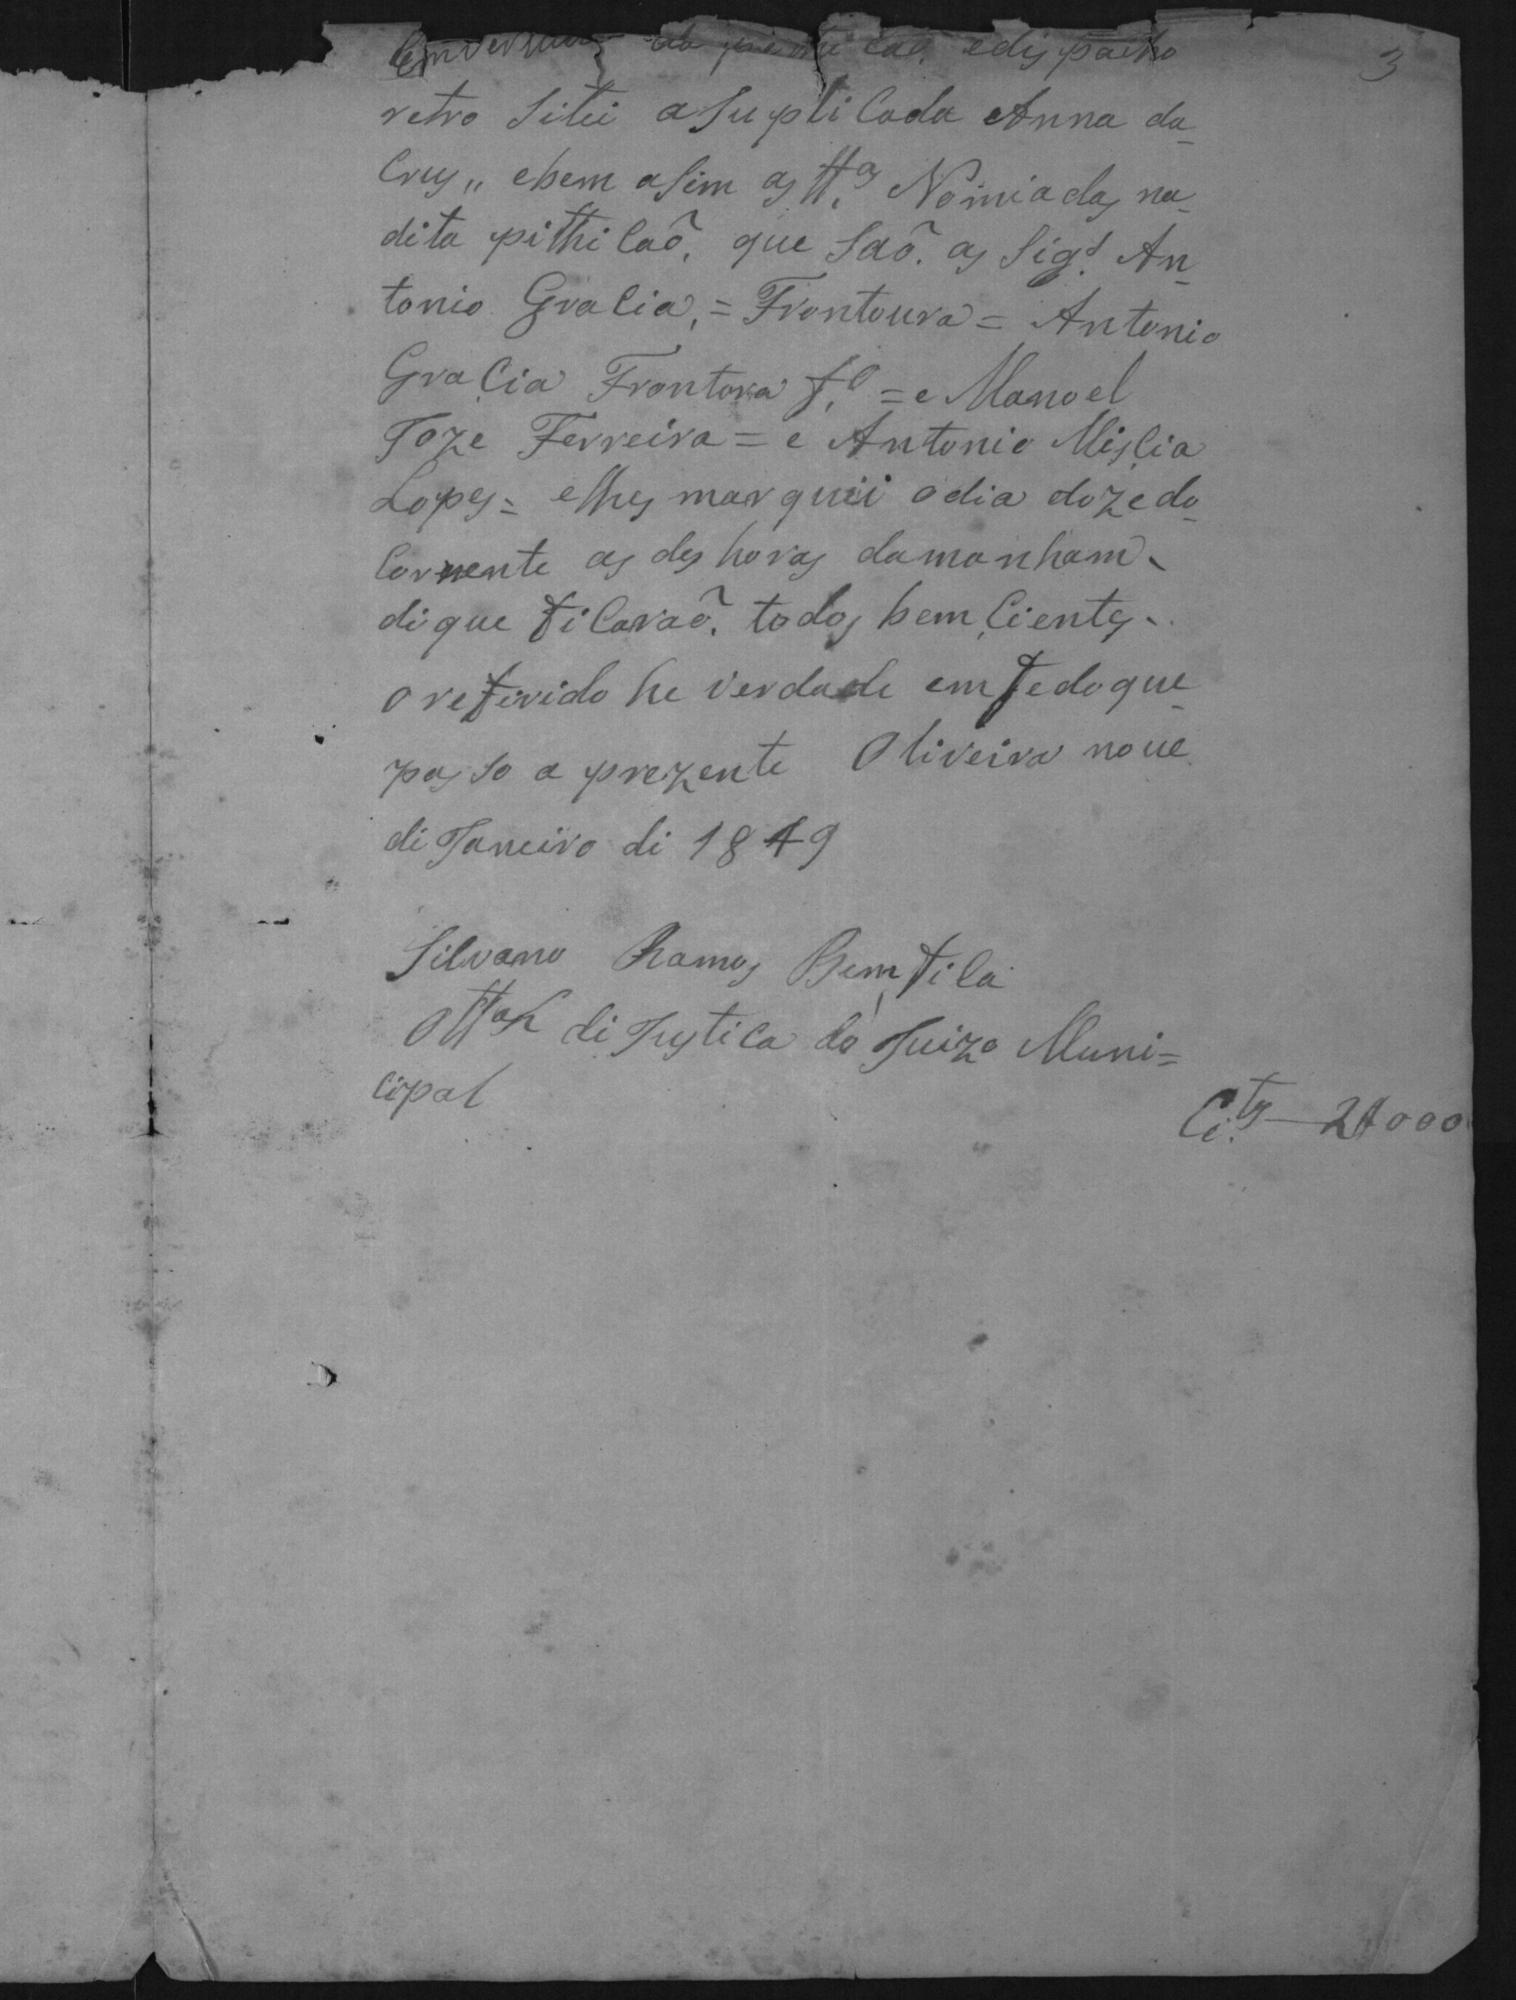 3
edispacho
retro Sitei a Suplicada Anna da
Crus,, ebem asim as tt.as Nomiadas na
dita pithicaõ, que Saõ. as Sig.s An
tonio Gracia, = Frontoura = Antonio
Gracia Frontora f.o = e Manoel
Joze Ferreira = e Antonio Miscia
Lopes = elhes marquei odia dozedo
Corrente as des horas damanham.
dique ficaraõ. todos bem Cientes.
o referido he verdade emfedoque
passo a prezente Oliveira nove
di Janeiro di 1849
Silvano Ramos Bemfica
Off.al di Justica do Juizo Muni=
cipal
Ci.tes — 2$000